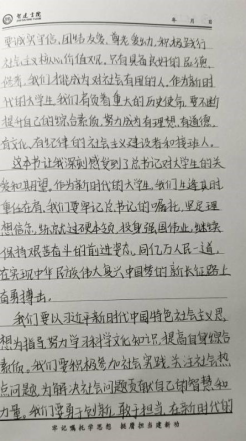 年 月 日
要诚实守信、团结友爱、尊老爱幼、积极践行
社会主义核心价值观。只有具备良好的品德
修养，我们才能成为对社会有用的人。作为新时
代的大学生，我们肩负着重大的历史使命，要不断
提升自己的综合素质，努力成为有理想、有道德、
有文化、有纪律的社会主义建设者和接班人。
这本书让我深刻感受到了总书记对大学生的关
爱和期望。作为新时代的大学生，我们生逢其时
重任在肩，我们要牢记总书记的嘱托，坚定理
想信念，练就过硬本领，投身强国伟业，继续
保持艰苦奋斗的前进姿态，同亿万人民一道，
在实现中华民族伟大复兴中国梦的新长征路上
奋勇搏击。
我们要以习近平新时代中国特色社会主义思
想为指导，努力学习科学文化知识，提高自身综合
素质。我们要积极参加社会实践，关注社会热
点问题，为解决社会问题贡献自己的智慧和
力量。我们要勇于创新，敢于担当，在新时代的
牢记嘱托学思想